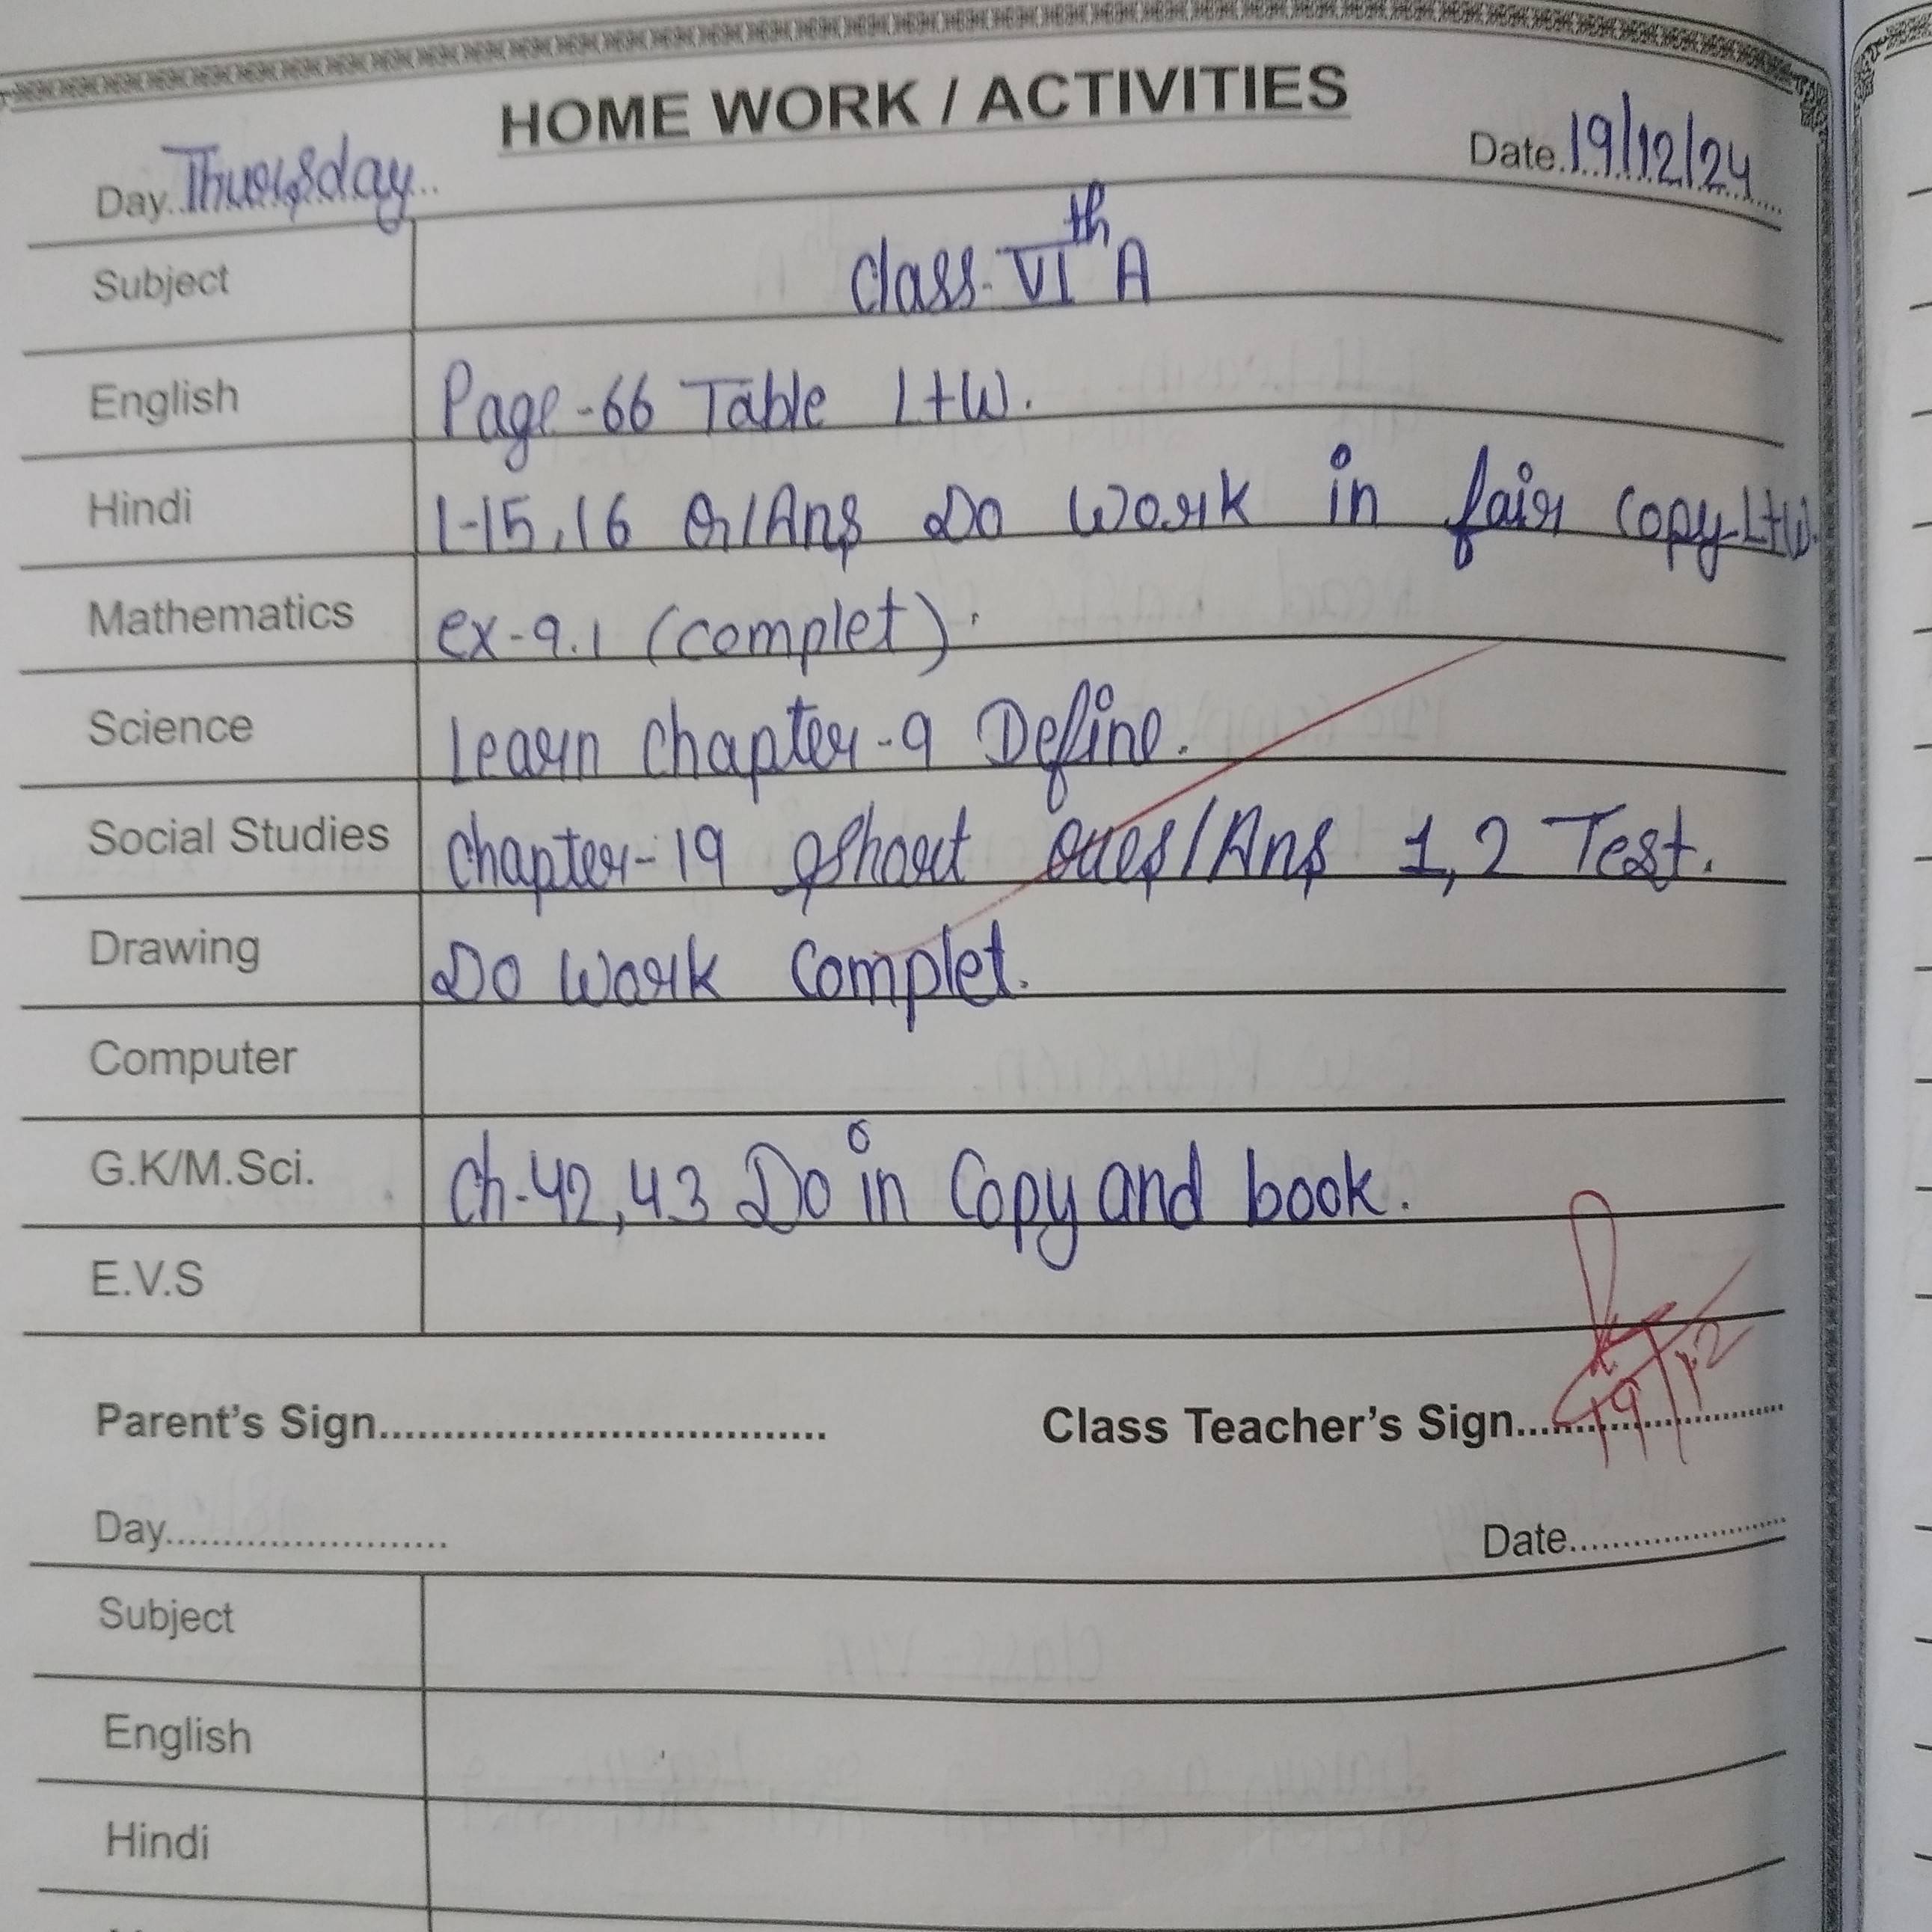 HOME WORK / ACTIVITIES
Day..Thursday... Date.19/12/24
Subject Class-VIth A
English Page-66 Table L+W.
Hindi L-15,16 Q/Ans Do Work in fair Copy-L+W.
Mathematics ex-9.1 (complet).
Science Learn Chapter-9 Define.
Social Studies Chapter-19 Short Ques/Ans 1,2 Test.
Drawing Do Work Complet.
Computer
G.K/M.Sci. Ch-42,43 Do in Copy and book.
E.V.S
19/12
Parent's Sign................................... Class Teacher's Sign.....................
Day........................ Date.....................
Subject
English
Hindi